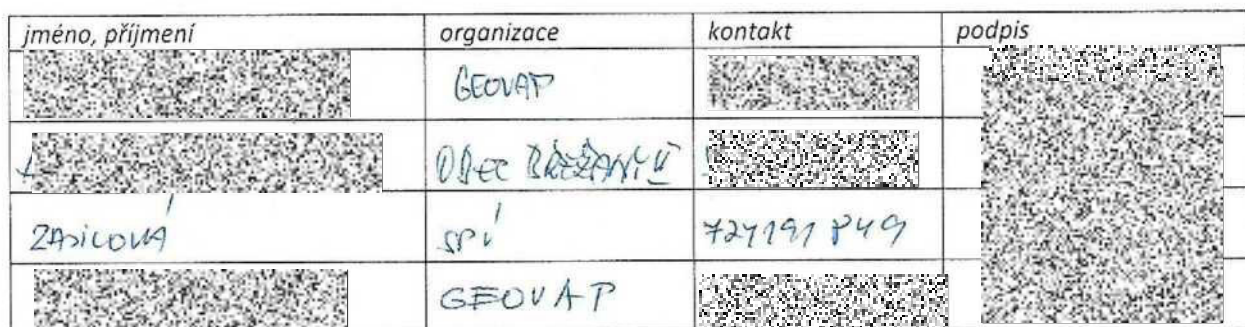 jméno, příjmení organizace kontakt podpis
GEOVAP
OBEC BŘEŽANY II
SPÚ 724191849
GEOVAP